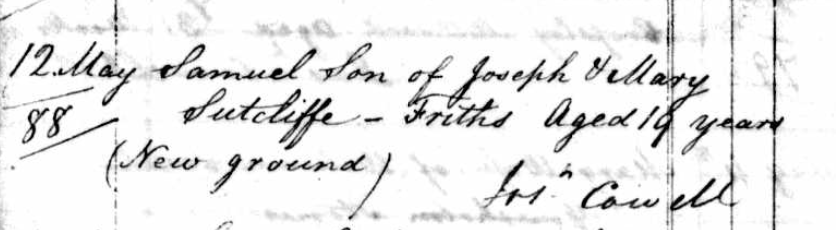 12 May Samuel Son of Joseph & Mary
88 Sutcliffe - Friths Aged 19 years
(New ground)
Josh Cowell